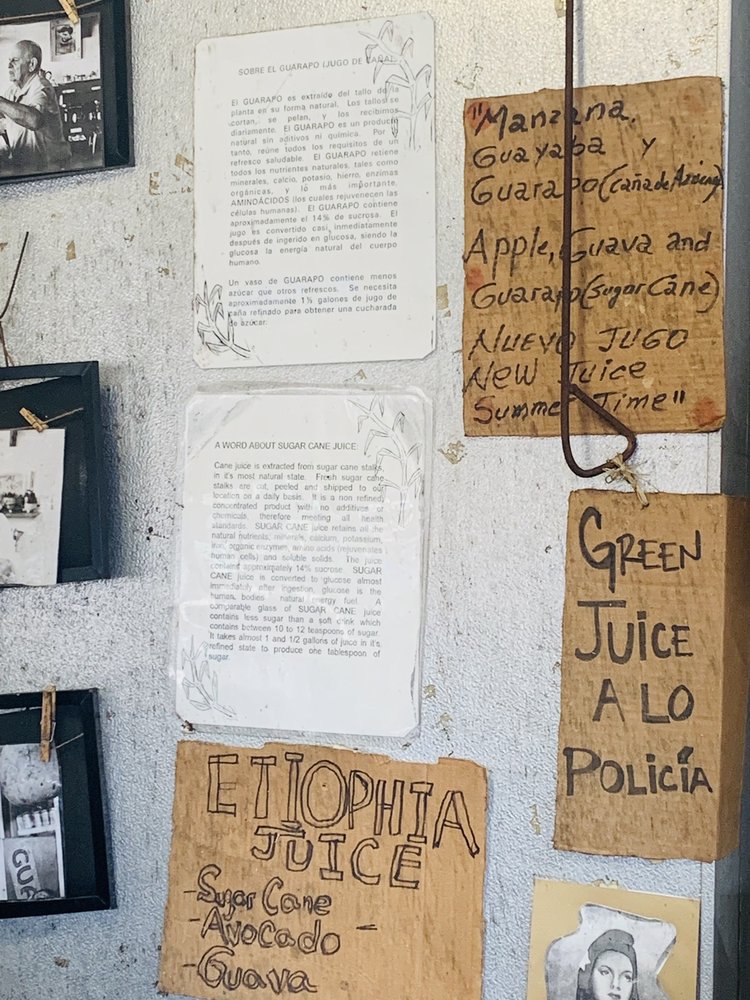 SOBRE EL GUARAPO (JUGO DE CAÑA)
El GUARAPO es extraído del tallo de la
planta en su forma natural. Los tallos se
cortan, se pelan, y los recibimos
diariamente. El GUARAPO es un producto
natural sin aditivos ni química. Por lo
tanto, reúne todos los requisitos de un
refresco saludable. El GUARAPO retiene
todos los nutrientes naturales, tales como
minerales, calcio, potasio, hierro, enzimas
orgánicas, y lo más importante,
AMINOÁCIDOS (los cuales rejuvenecen las
células humanas). El GUARAPO contiene
aproximadamente el 14% de sucrosa. El
jugo es convertido casi inmediatamente
después de ingerido en glucosa, siendo la
glucosa la energía natural del cuerpo
humano.
Un vaso de GUARAPO contiene menos
azúcar que otros refrescos. Se necesita
aproximadamente 1½ galones de jugo de
caña refinado para obtener una cucharada
de azúcar.
"Manzana,
Guayaba y
Guarapo (caña de Azúcar)
Apple, Guava and
Guarapo (Sugar Cane)
NUEVO JUGO
NEW Juice
Summer Time"
A WORD ABOUT SUGAR CANE JUICE:
Cane juice is extracted from sugar cane stalks,
in it's most natural state. Fresh sugar cane
stalks are cut, peeled and shipped to our
location on a daily basis. It is a non refined,
concentrated product with no additives or
chemicals, therefore meeting all health
standards. SUGAR CANE juice retains all the
natural nutrients, minerals, calcium, potassium,
iron, organic enzymes, amino acids (rejuvenates
human cells) and soluble solids. The juice
contains approximately 14% sucrose. SUGAR
CANE juice is converted to glucose almost
immediately after ingestion, glucose is the
human bodies natural energy fuel. A
comparable glass of SUGAR CANE juice
contains less sugar than a soft drink which
contains between 10 to 12 teaspoons of sugar.
It takes almost 1 and 1/2 gallons of juice in it's
refined state to produce one tablespoon of
sugar.
GREEN
JUICE
A LO
POLICÍA
ETIOPHIA
JUICE
-Sugar Cane
-Avocado -
-Guava
GUA